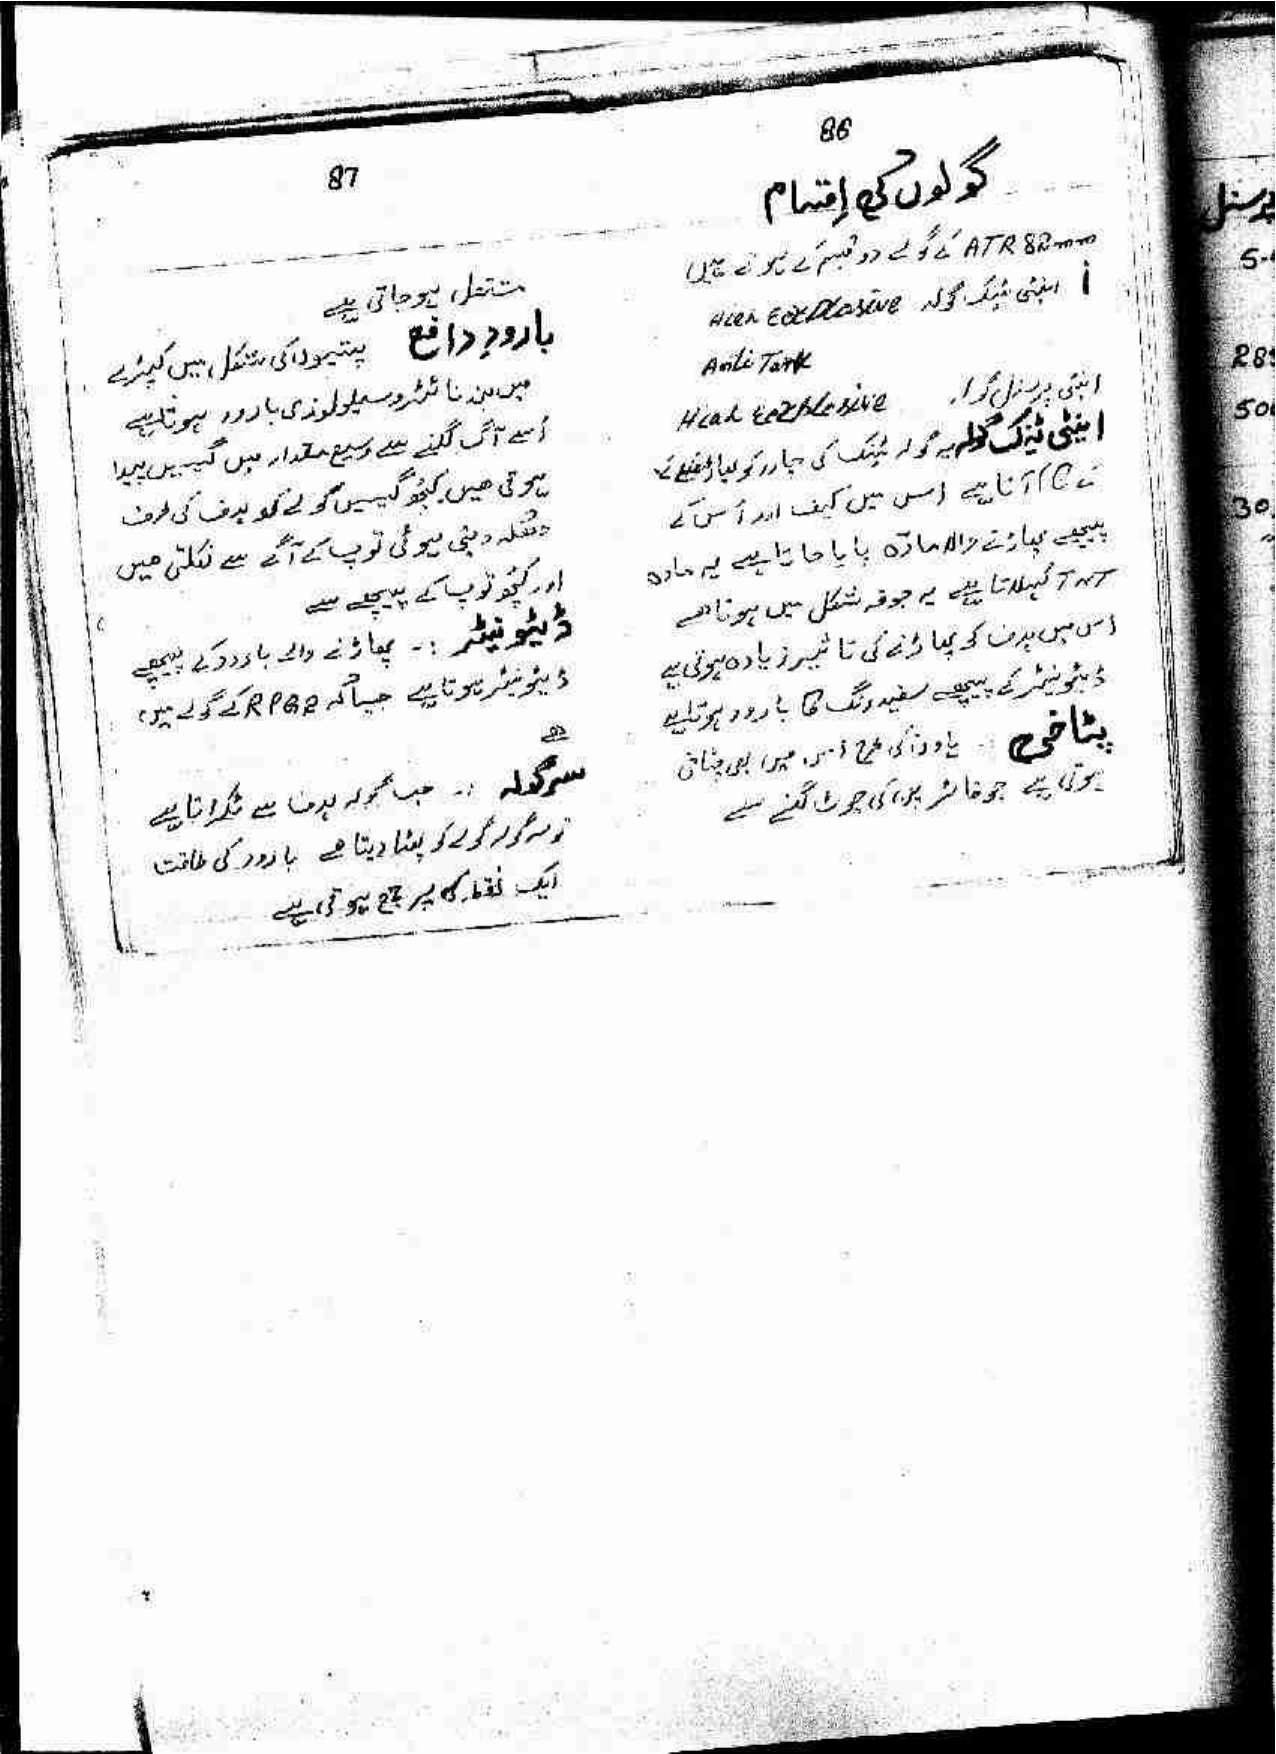 86
گولوں کی اقسام
ATR 82mm کے گولے دو قسم کے ہوتے ہیں
i اینٹی ٹینک گولہ High Explosive
Anti Tank
اینٹی پرسنل گولہ High Explosive
اینٹی ٹینک گولہ یہ گولہ ٹینک کی چادر کو پھاڑنے کے
آتا ہے اس میں کیف اور اس کے
پیچھے پھاڑنے والا مادہ پایا جاتا ہے یہ مادہ
TNT کہلاتا ہے یہ جوف شکل میں ہوتا ہے
اس میں ہدف کو پھاڑنے کی تاثیر زیادہ ہوتی ہے
ڈیٹونیٹر کے پیچھے سفید رنگ کا بارود ہوتا ہے
پٹاخی :- کی طرح اس میں بھی پٹاخی
ہوتی ہے جو فائر پن کی چوٹ لگنے سے
87
مشتعل ہو جاتی ہے
بارود دافع پتیوں کی شکل میں کپڑے
میں بند نائٹروسیلولوزی بارود ہوتا ہے
اسے آگ لگنے سے وسیع مقدار میں گیسیں پیدا
ہوتی ھیں کچھ گیسیں گولے کو ہدف کی طرف
دھکہ دیتی ہوئی توپ کے آگے سے نکلتی ھیں
اور کچھ توپ کے پیچھے سے
ڈیٹونیٹر :- پھاڑنے والے بارود کے پیچھے
ڈیٹونیٹر ہوتا ہے جیسا کہ RPG2 کے گولے میں
ھے
سر گولہ :- جب گولہ ہدف سے ٹکراتا ہے
تو سر گولہ گولے کو پھٹا دیتا ھے بارود کی طاقت
ایک نقطہ پر جمع ہوتی ہے
پرسنل
50
30